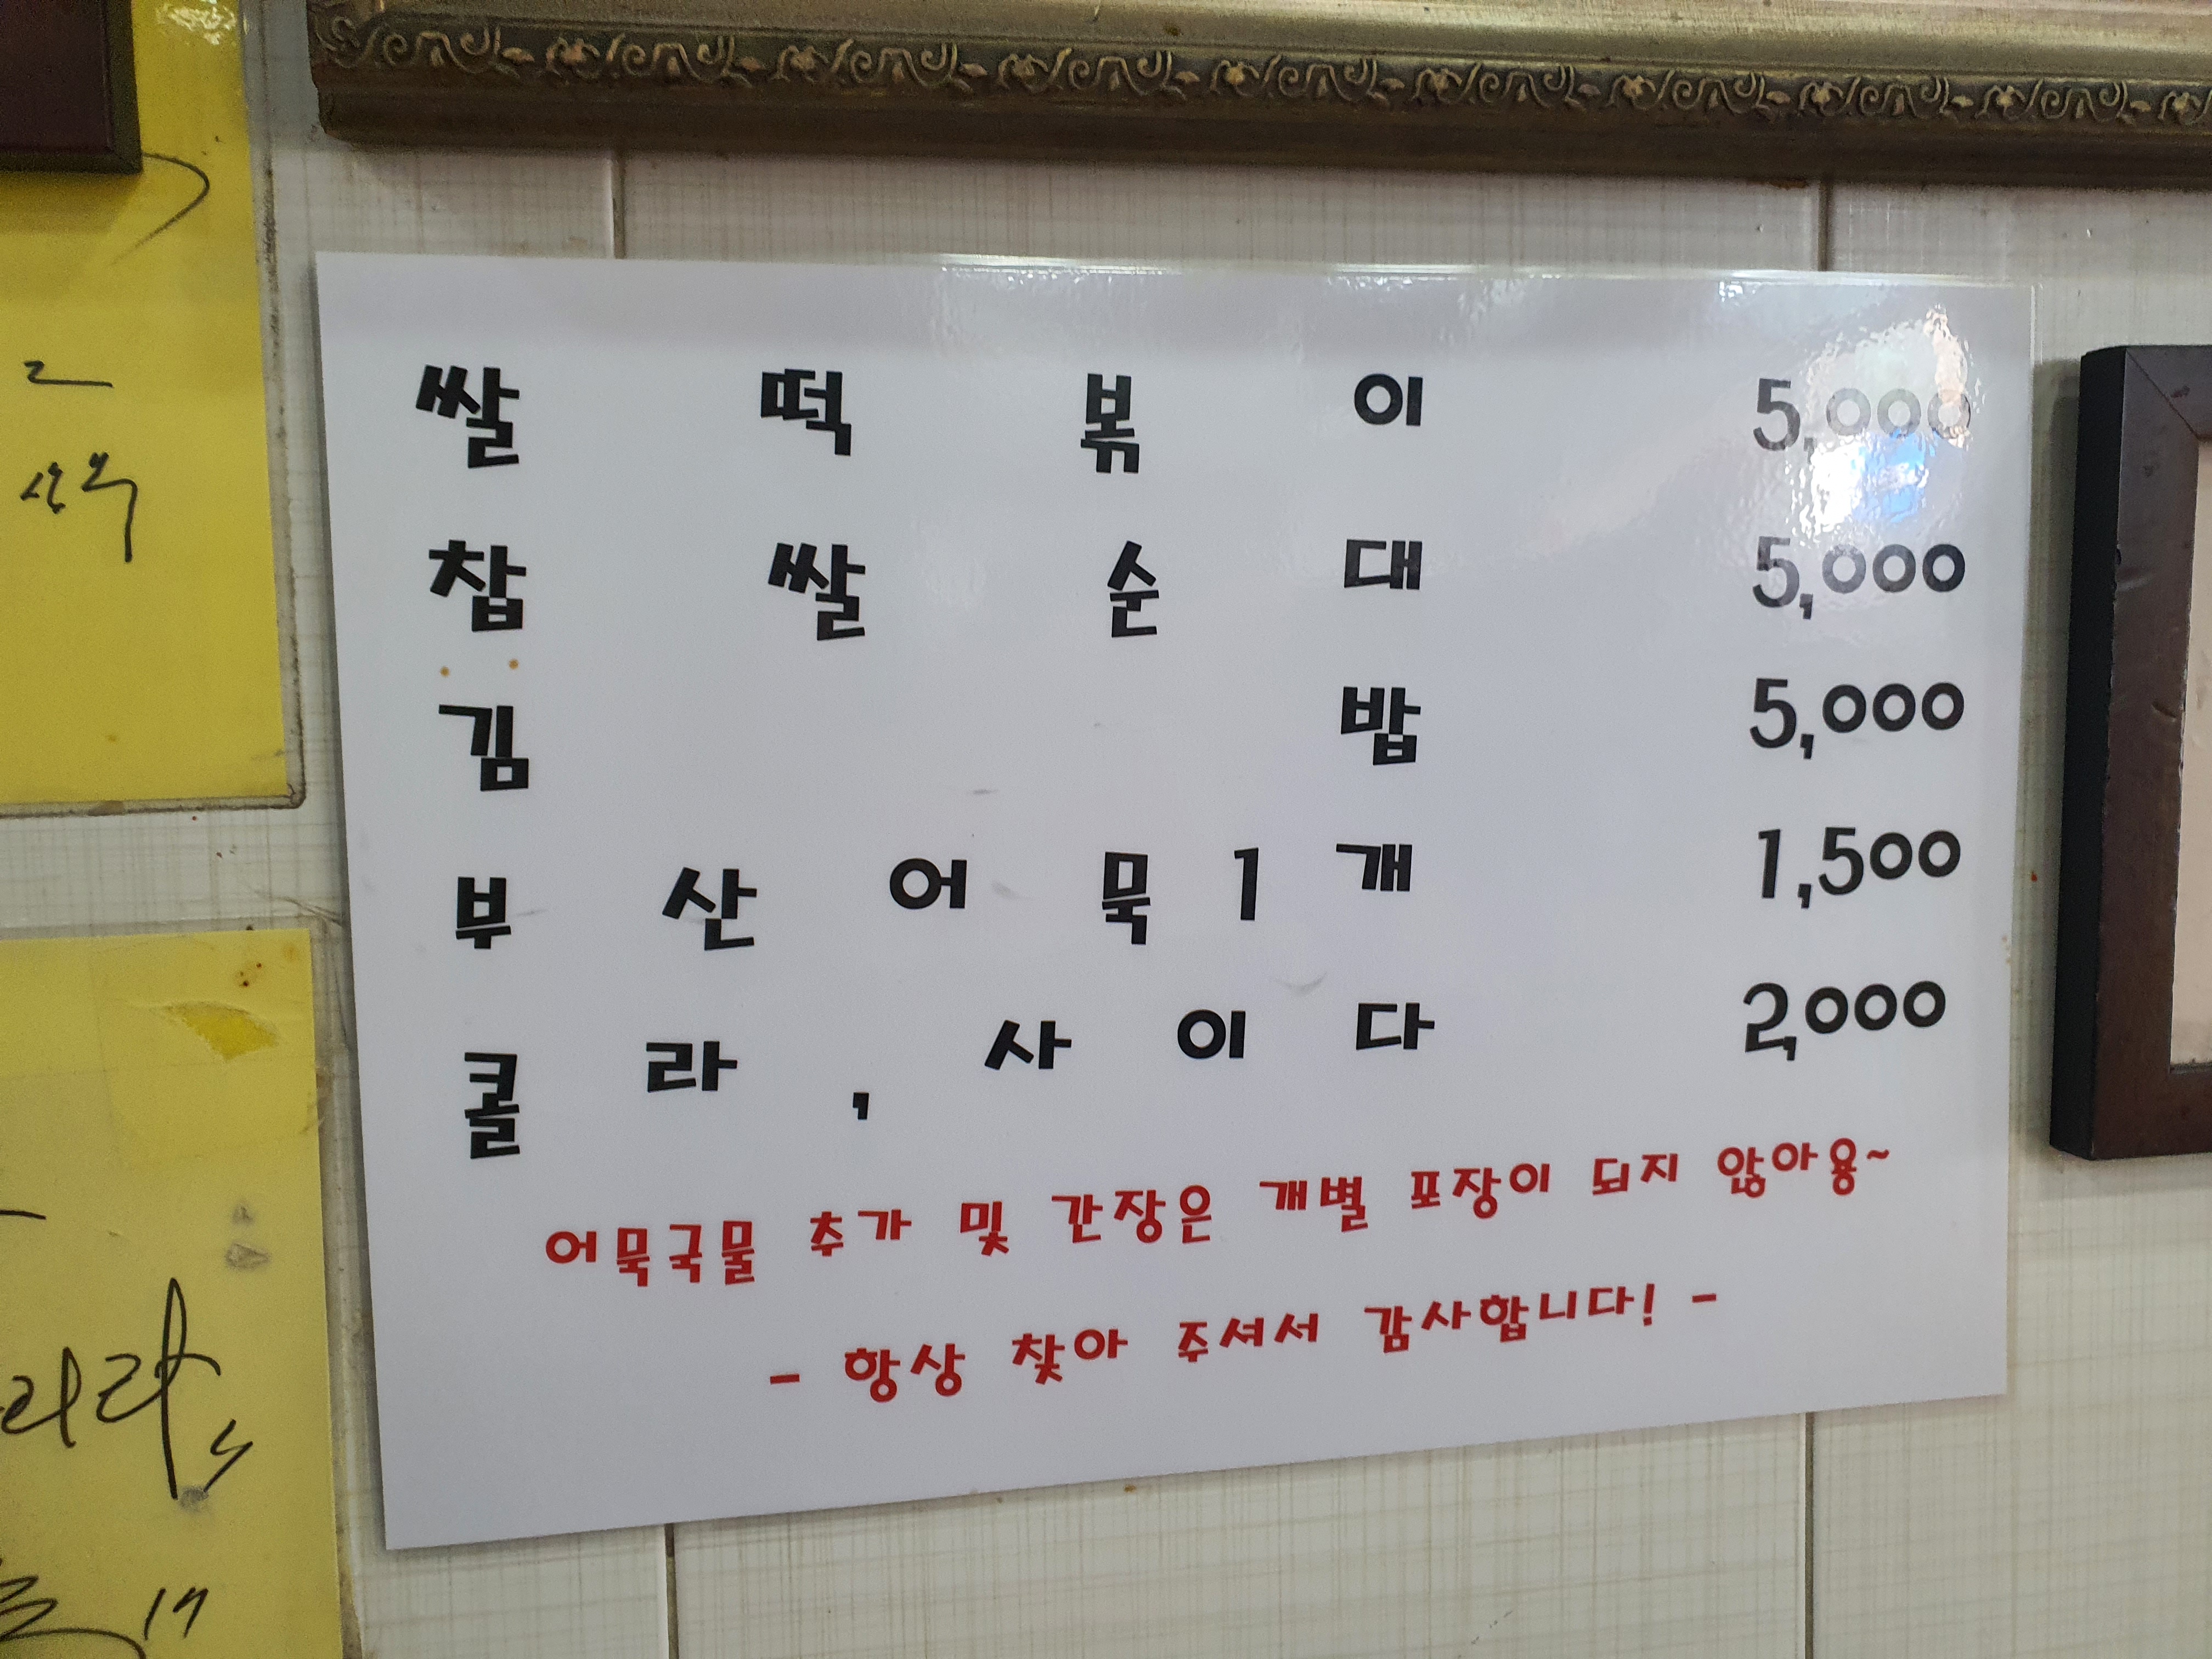 쌀떡볶이 5,000
찹쌀순대 5,000
김밥 5,000
부산어묵1개 1,500
콜라, 사이다 2,000
어묵국물 추가 및 간장은 개별 포장이 되지 않아용~
- 항상 찾아 주셔서 감사합니다! -